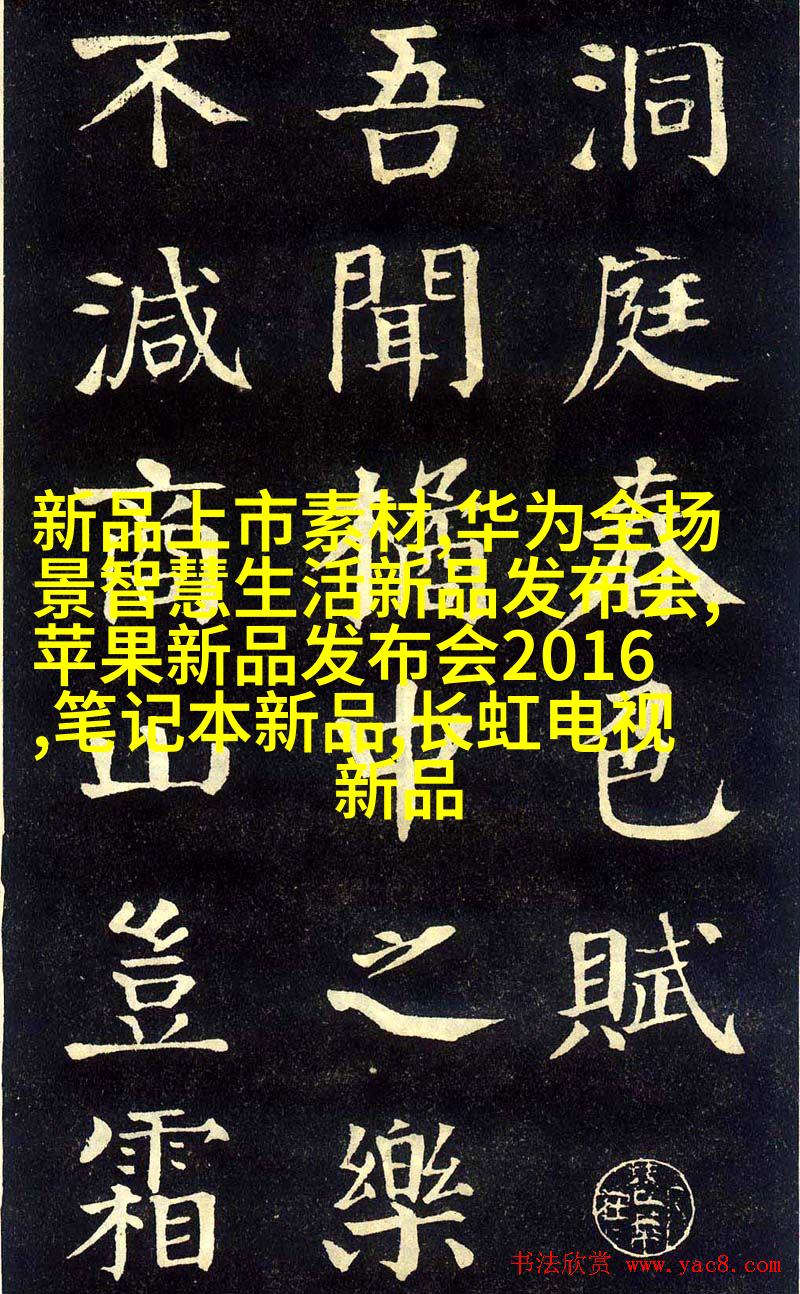 洞庭春色賦
吾聞橘中之樂
不減商山豈霜
新品上市素材,华为全场
景智慧生活新品发布会,
苹果新品发布会2016
,笔记本新品,长虹电视
新品
书法欣赏 www.yac8.com